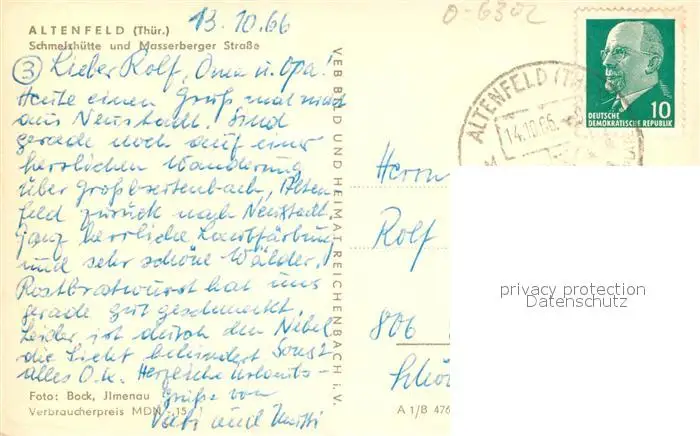 13.10.66
O-6302
ALTENFELD (Thür.)
Schmelzhütte und Masserberger Straße
③ Lieber Rolf, Oma u. Opa!
Heute einen Gruß mal nicht
aus Neustadt. Sind
gerade noch auf einer
herrlichen Wanderung
über Großbreitenbach, Alten-
feld zurück nach Neustadt.
Ganz herrliche Laubfärbung
und sehr schöne Wälder.
Rostbratwurst hat uns
gerade gut geschmeckt.
Leider ist durch den Nebel
die Sicht behindert. Sonst
alles O.K. Herzliche Urlaubs-
Grüße von
Vati und Mutti
Foto: Bock, Jlmenau
Verbraucherpreis MDN -,15
VEB BILD UND HEIMAT REICHENBACH i. V.
A 1/B 476
ALTENFELD (TH
14.10.66
DEUTSCHE
DEMOKRATISCHE REPUBLIK
10
Herrn
Rolf
806
privacy protection
Datenschutz